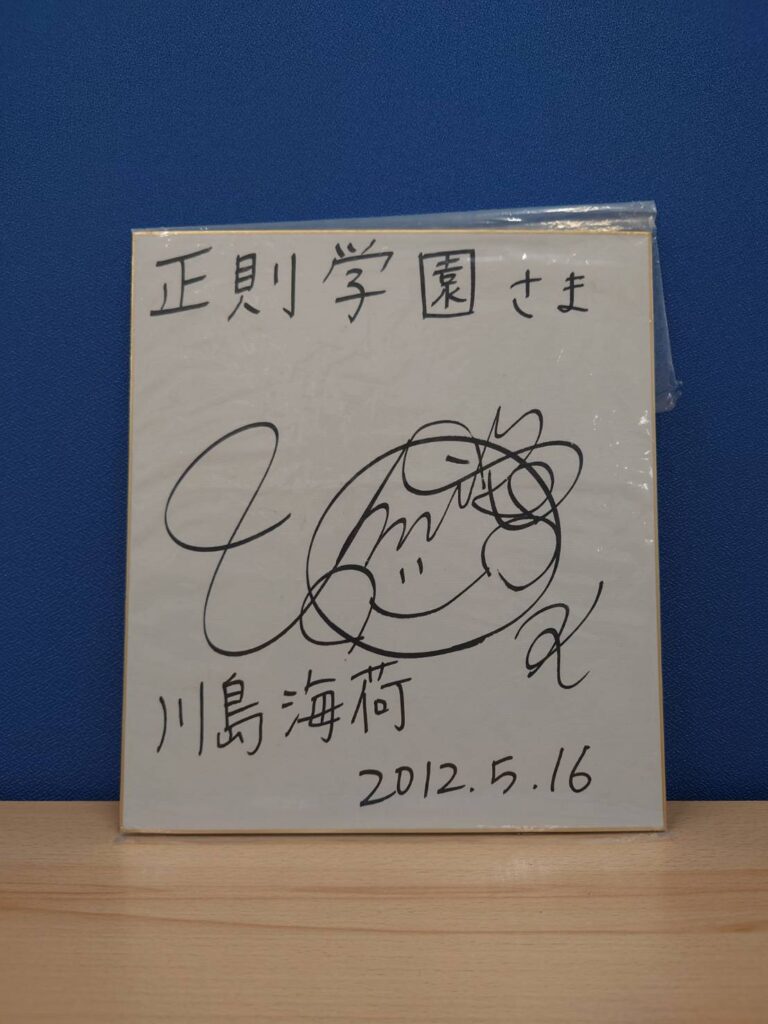 正則学園さま
川島海荷
2012.5.16